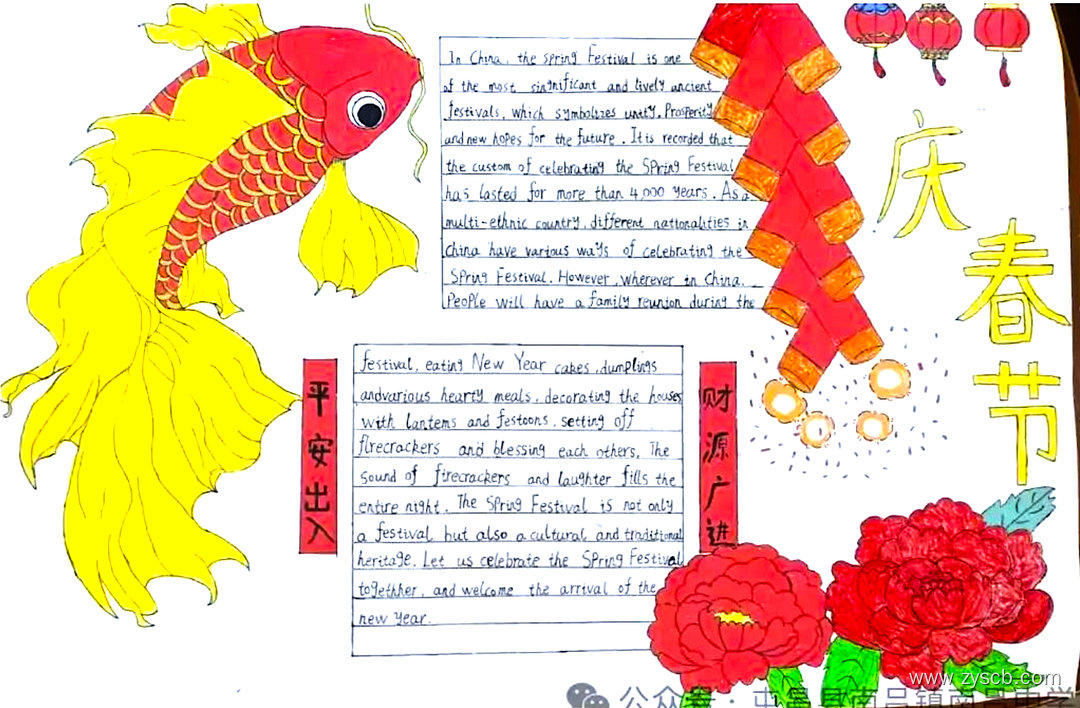 In China, the spring Festival is one
of the most singnificant and lively ancient
festivals, which symbolizes unity, Prosperity
and new hopes for the future. It is recorded that
the custom of celebrating the Spring Festival
has lasted for more than 4,000 years. As a
multi-ethnic country, different nationalities in
China have various ways of celebrating the
Spring Festival. However, wherever in China,
People will have a family reunion during the
festival, eating New Year cakes, dumplings
andvarious hearty meals, decorating the houses
with lantems and festoons, setting off
firecrackers and blessing each others. The
sound of firecrackers and laughter fills the
entire night. The Spring Festival is not only
a festival but also a cultural and traditional
heritage. Let us celebrate the Spring Festival
togethher, and welcome the arrival of the
new year.
平安出入
财源广进
庆春节
www.zyscb.com
公众号·屯昌县南吕镇南吕中学